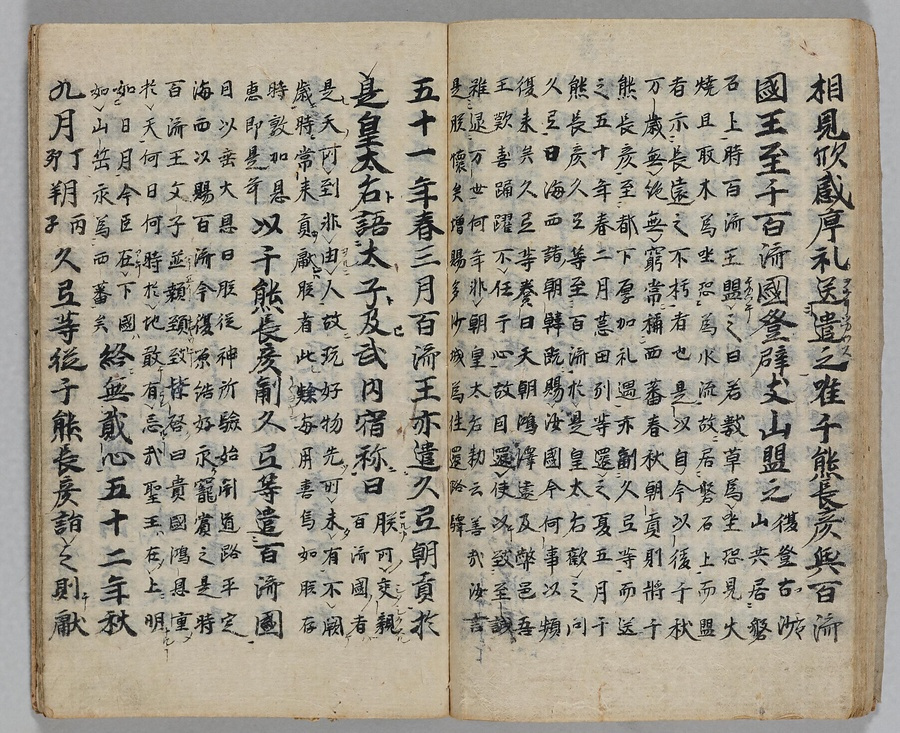 相見欣感厚礼送遣之唯千熊長彦與百済
國王至千百済國登辟支山盟之
復登古沙
山共居磐
石上時百済王盟之曰若敷草為坐恐見火
燒且取木為坐恐為水流故居磐石上而盟
者示長遠之不朽者也是以自今以後千秋
万歳無絶無窮常稱西蕃春秋朝貢則將千
熊長彦至都下厚加礼遇亦副久氐等而送
之五十年春二月荒田別等還之夏五月千
熊長彦久氐等至百済於是皇太右歡之問
久氐曰海西諸朝韓既賜汝國今何事以頻
復来矣久氐等奏曰天朝鴻澤遠及弊邑吾
王歡喜踊躍不任于心故因還使以致至誠
雖逮万世何年非朝皇太右勅云善哉汝言
是朕懐矣増賜多沙城為往還路驛
五十一年春三月百済王亦遣久氐朝貢於
是皇太右語太子及武内宿祢曰
朕所交親
百済國者
是天所到非由人故玩好物先所未有不闕
歳時常来貢獻朕省此欵毎用善焉如朕存
時敦加恩
惠即是年
以千熊長彦副久氐等遣百済國
因以垂大恩曰朕從神所驗始開道路平定
海西以賜百済今復厚結好永寵賞之是時
百済王父子並顙頚致啓曰貴國鴻恩重
於天何日何時於地敢有忘哉聖王在上明
如日月今臣在下國
如山岳永為西蕃矣
給無貳心五十二年秋
九月丁卯朔丙子久氐等從千熊長彦詣之則獻